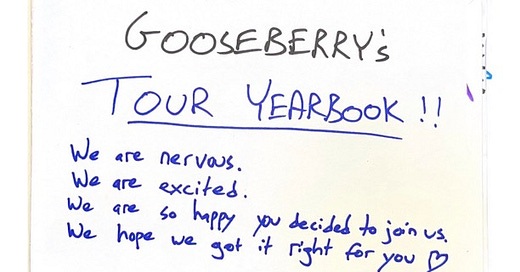 GOOSEBERRY's
TOUR YEARBOOK!!
We are nervous.
We are excited.
We are so happy you decided to join us.
We hope we got it right for you ♡